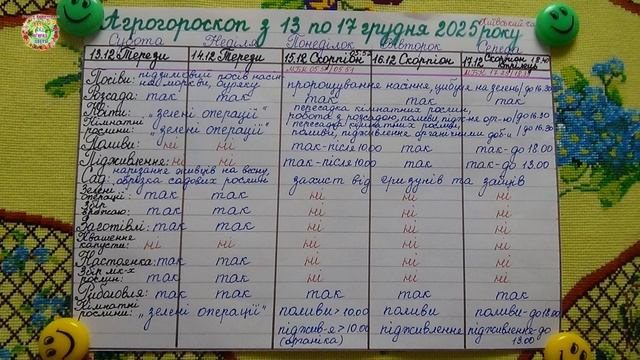 Агрогороскоп з 13 по 17 грудня 2025 року
Київський час
Субота Неділя Понеділок Вівторок Середа
13.12 Терези 14.12 Терези 15.12 Скорпіон 16.12 Скорпіон 17.12 Скорпіон
Посіви: підзимовий посів насіння моркви, буряку пророщування насіння, цибулі на зелень/до 16.30
Розсада: так так так так так
Квіти: „зелені операції" пересадка кімнатних рослин, робота з розсадою, поливи до 16.30
Кімнатні рослини: „зелені операції" пересадка кімнатних рослин, поливи, підживлення органічними доб-и/до 16.30
Поливи: ні ні так-після 10.00 так так-до 18.00
Підживлення: ні ні так-після 10.00 так так-до 13.00
Сад: нарізание живців на весну, обрізка садових рослин захист від гризунів та зайців
Зелені операції: так так ні ні ні
Збір врожаю: так так ні ні ні
Заготівлі: так так ні ні ні
Квашення капусти: ні ні ні ні ні
Настоянка: так так ні ні ні
Збір лік-х рослин: так так ні ні ні
Риболовля: так так так так так
Кімнатні рослини: „зелені операції" поливи>10.00 поливи поливи-до 18.00
піджив-я>10.00 підживлення підживлення-до 13.00
(органіка)